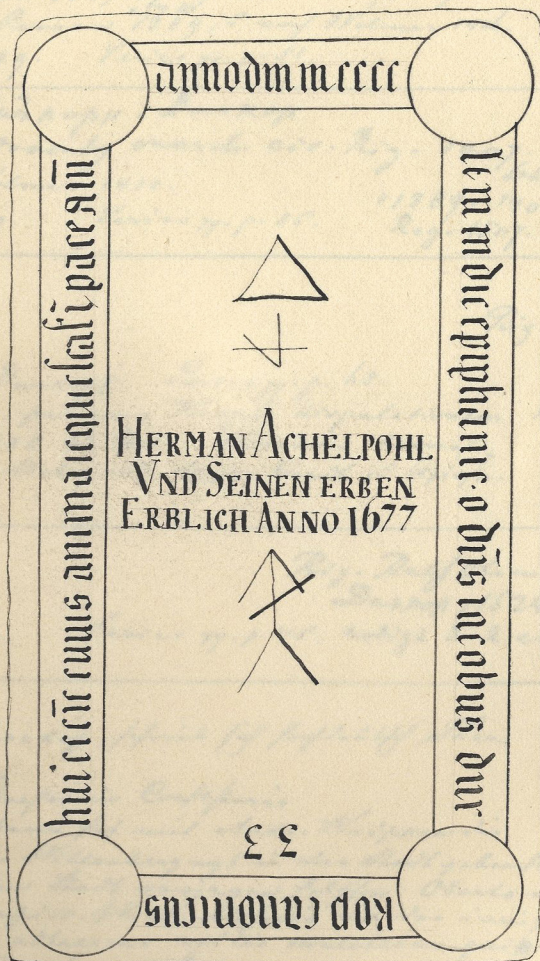 annodmmcccc
indie epiphanie o dn̄s iacobus dur
kop canonicus
hui eccl̄ie cuius anima requiescat ī pace am̄
HERMAN ACHELPOHL
VND SEINEN ERBEN
ERBLICH ANNO 1677
33